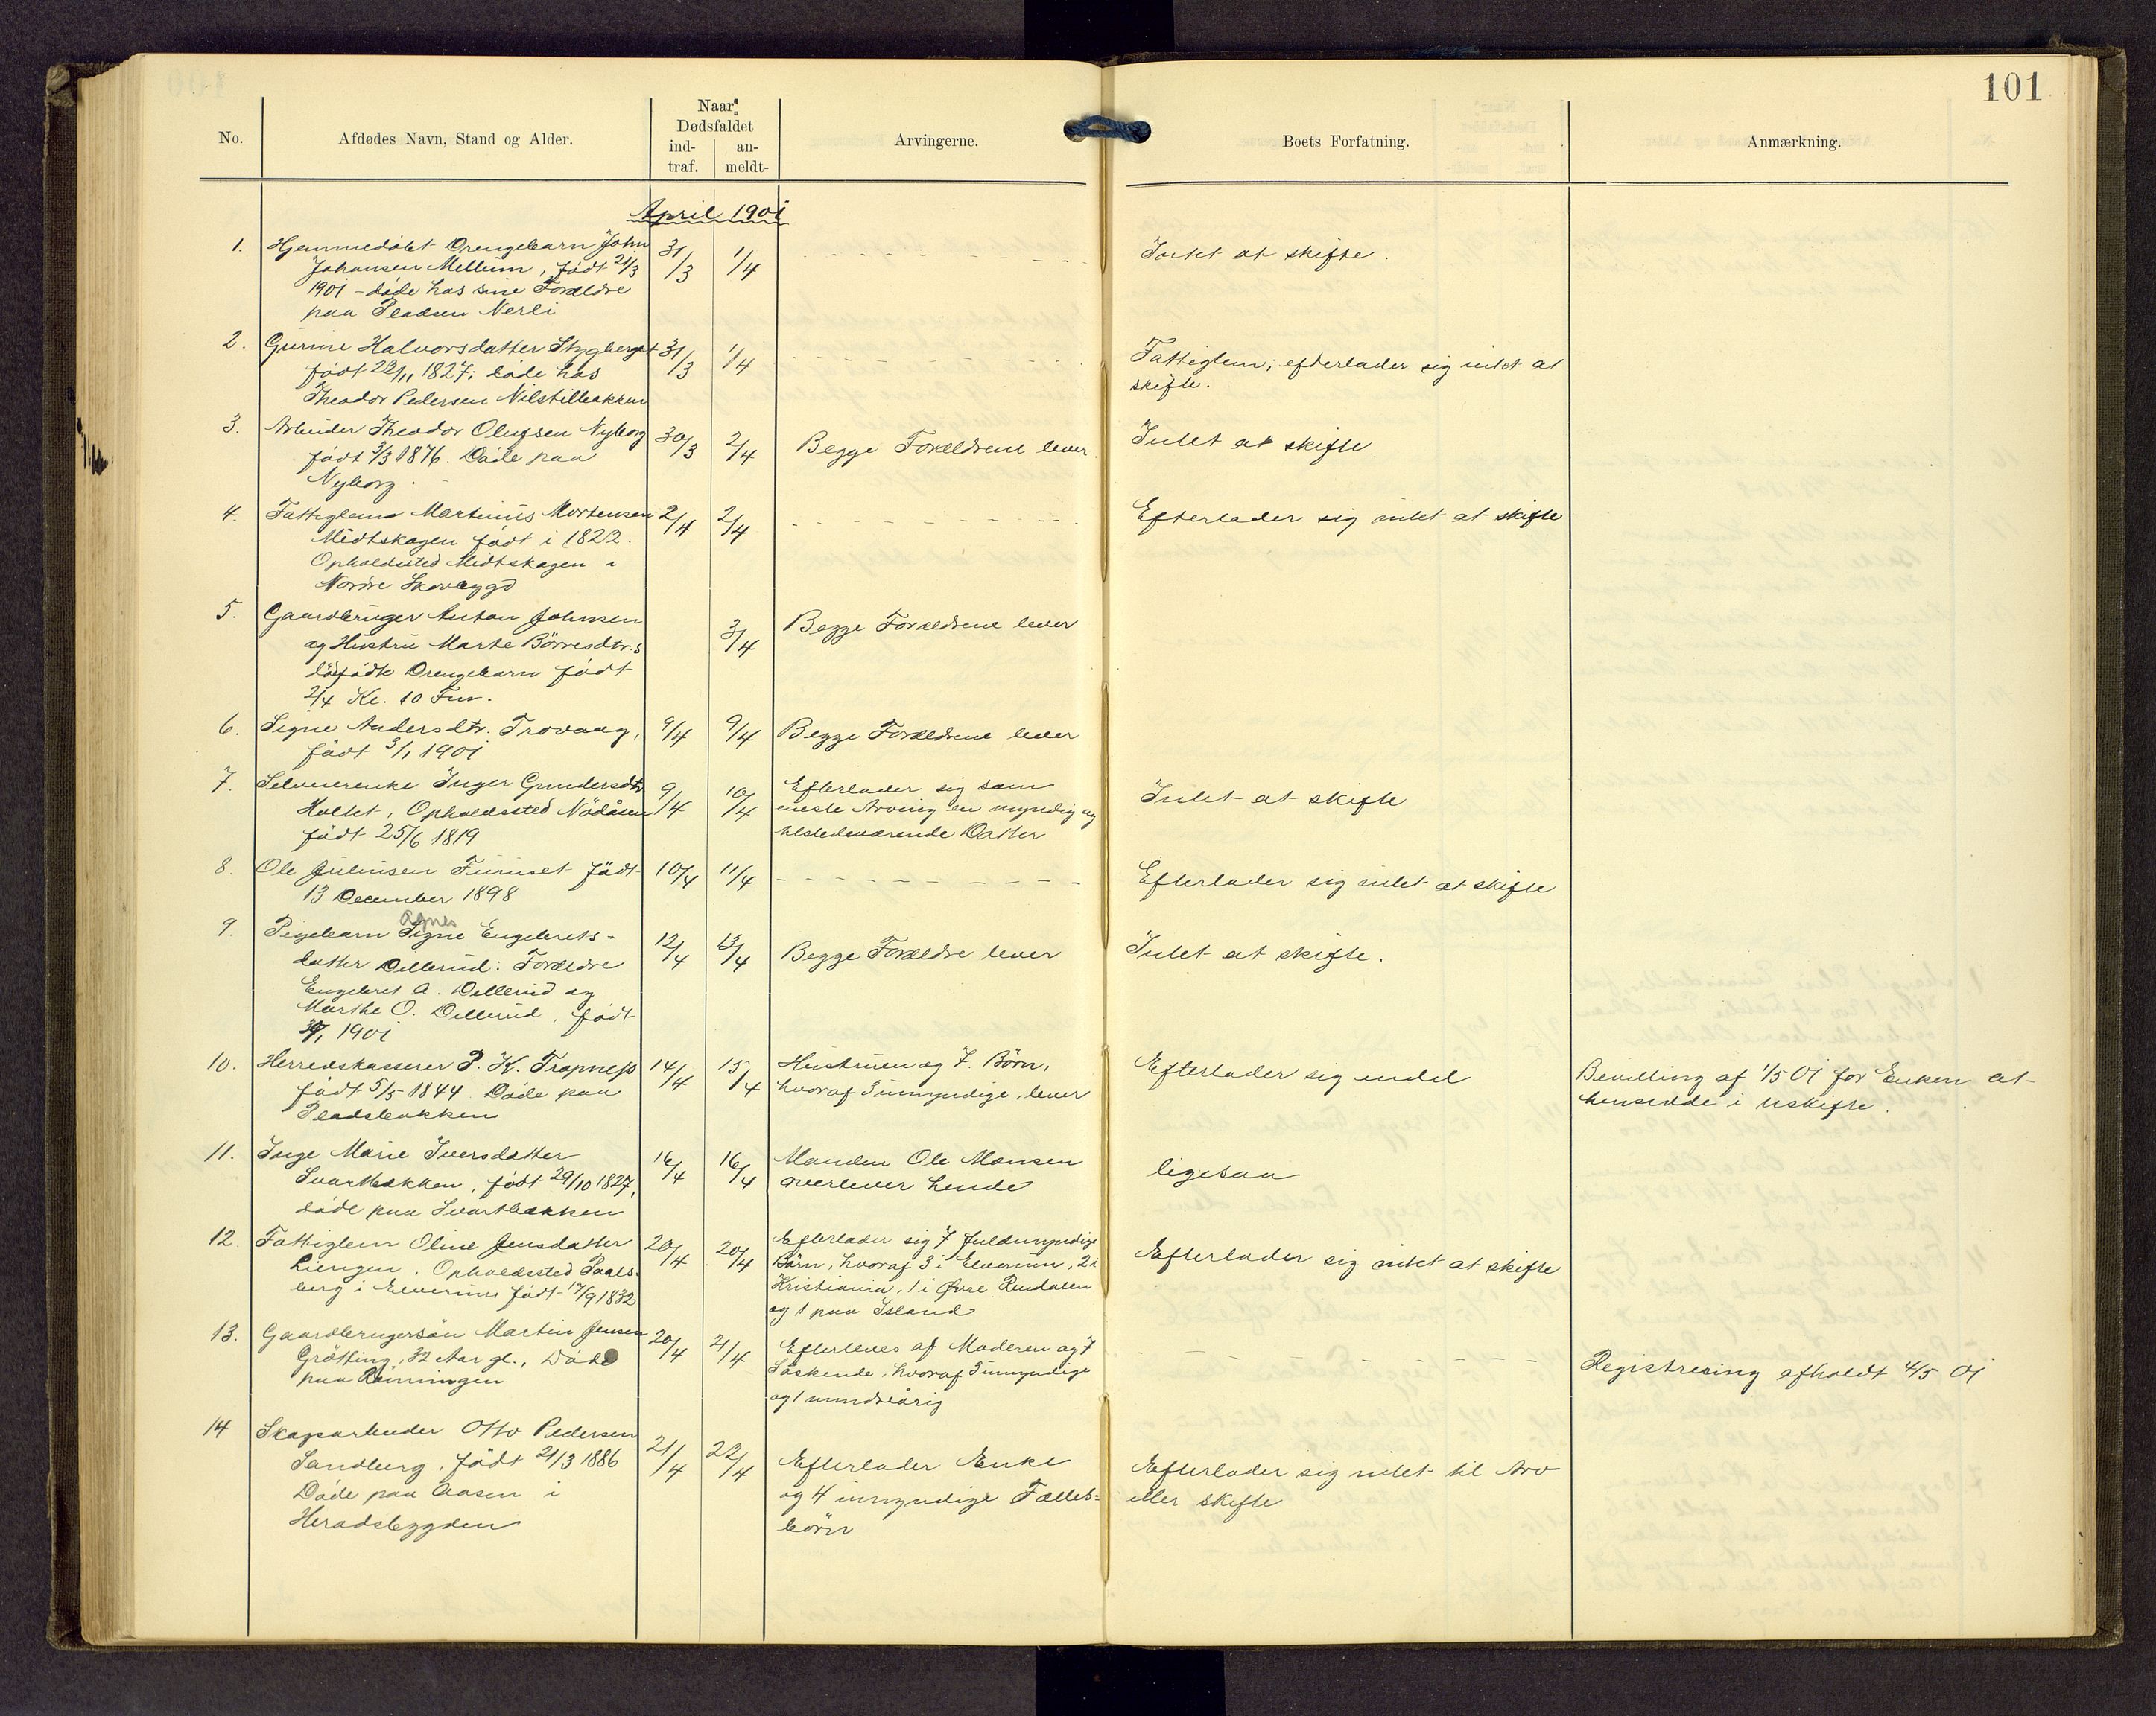 101
No.
Afdødes Navn, Stand og Alder.
Naar
Dødsfaldet
ind-
traf.
an-
meldt-
Arvingerne.
Boets Forfatning.
Anmærkning.
April 1901
1. Hjemmedøbt Drengebarn John 31/3 1/4 Intet at skifte.
Johansen Mellum, født 21/3
1901 - døde hos sine Forældre
paa Pladsen Nerli
2. Gurine Halvorsdatter Stygberget 31/3 1/4 Fattiglem; efterlader sig intet at
skifte.
født 1827; døde hos
Theodor Pedersen Nilstilbakken
3. Arbeider Theodor Olufsen Nyborg 30/3 2/4 Begge Forældrene lever Intet at skifte
født 3/3 1876. Døde paa
Nyborg.
4. Fattiglem Martinus Mortensen 2/4 2/4 Efterlader sig intet at skifte
Midtskogen født i 1822.
Opholdssted Midtskogen i
Nordre Skovbygd
5. Gaardbruger Anton Johnsen 3/4 Begge Forældrene lever
og Hustru Marte Börresdtr.s
dødfødte Drengebarn født
2/4 Kl. 10 Fm.
6. Signe Andersdtr. Trovaag, 9/4 9/4 Begge Forældrene lever
født 3/1 1901
7. Selveierenke Inger Gundersdtr 9/4 10/4 Efterlader sig som Intet at skifte
Holtet, Opholdssted Nödåsen
født 25/6 1819
neste Arving en myndig og
tilstedeværende Datter
8. Ole Juliusen Furuset født 10/4 11/4 Efterlader sig intet at skifte
13 December 1898
9. Pigebarn Signe Engebrets- 12/4 13/4 Begge Forældre lever Intet at skifte.
Agnes
datter Dellerud. Forældre
Engebret A. Dellerud og
Marthe O. Dellerud, født
1901
10. Herredskasserer P. K. Trapness 14/4 15/4 Hustruen og 7 Børn, Efterlader sig endel Bevilling af 1/5 01 for Enken at
hensidde i uskifte.
født 5/5 1844 Døde paa
Pladsbakken
hvoraf 3 umyndige, lever
11. Inge Marie Iversdatter 16/4 16/4 Manden Ole Monsen ligesaa
Svartbekken, født 29/10 1827,
døde paa Svartbekken
overlever hende
12. Fattiglem Oline Jensdatter 20/4 20/4 Efterlader sig 7 fuldmyndige Efterlader sig intet at skifte
Liengen. Opholdssted Paals-
berg i Elverum født 17/9 1832
Börn, hvoraf 3 i Elverum, 2 i
Kristiania, 1 i Øvre Rendalen
og 1 paa Island
13. Gaardbrugersön Martin Jensen 20/4 21/4 Efterleves af Moderen og 7 Registrering afholdt 4/5 01
Grötting, 32 Aar gl., Døde
paa
Söskende, hvoraf 3 umyndige
og 1 mindreårig
14 Skogsarbeider Otto Pedersen 21/4 22/4 Efterlader Enke Efterlader sig intet til Arv
Sandberg, født 21/3 1886
Døde paa Aasen i
Heradsbygden
og 4 umyndige Fælles-
börn
eller skifte